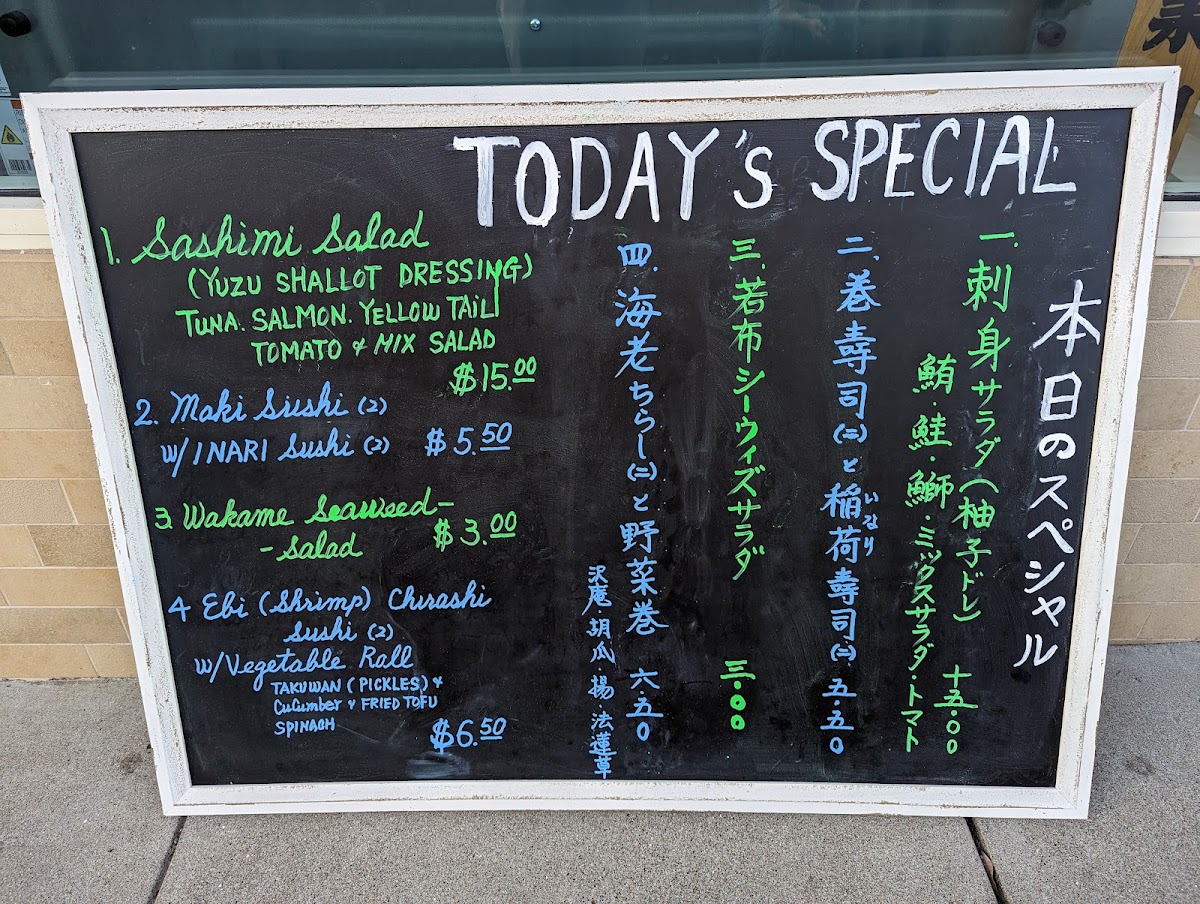 TODAY's SPECIAL
1. Sashimi Salad
(YUZU SHALLOT DRESSING)
TUNA. SALMON. YELLOW TAIL
TOMATO & MIX SALAD
$15.00
2. Maki Sushi (2)
w/INARI Sushi (2) $5.50
3. Wakame Seaweed-
-Salad $3.00
4 Ebi (Shrimp) Chirashi
Sushi (2)
w/Vegetable Roll
TAKUWAN (PICKLES) &
CUCUMBER & FRIED TOFU
SPINACH
$6.50
本日のスペシャル
一.刺身サラダ(柚子ドレ) 十五.00
鮪・鮭・鰤・ミックスサラダ・トマト
二.巻寿司(二)と稲荷寿司(二) 五.五0
いなり
三.若布シーウィズサラダ 三.00
四.海老ちらし(二)と野菜巻 六.五0
沢庵.胡瓜.揚.法蓮草